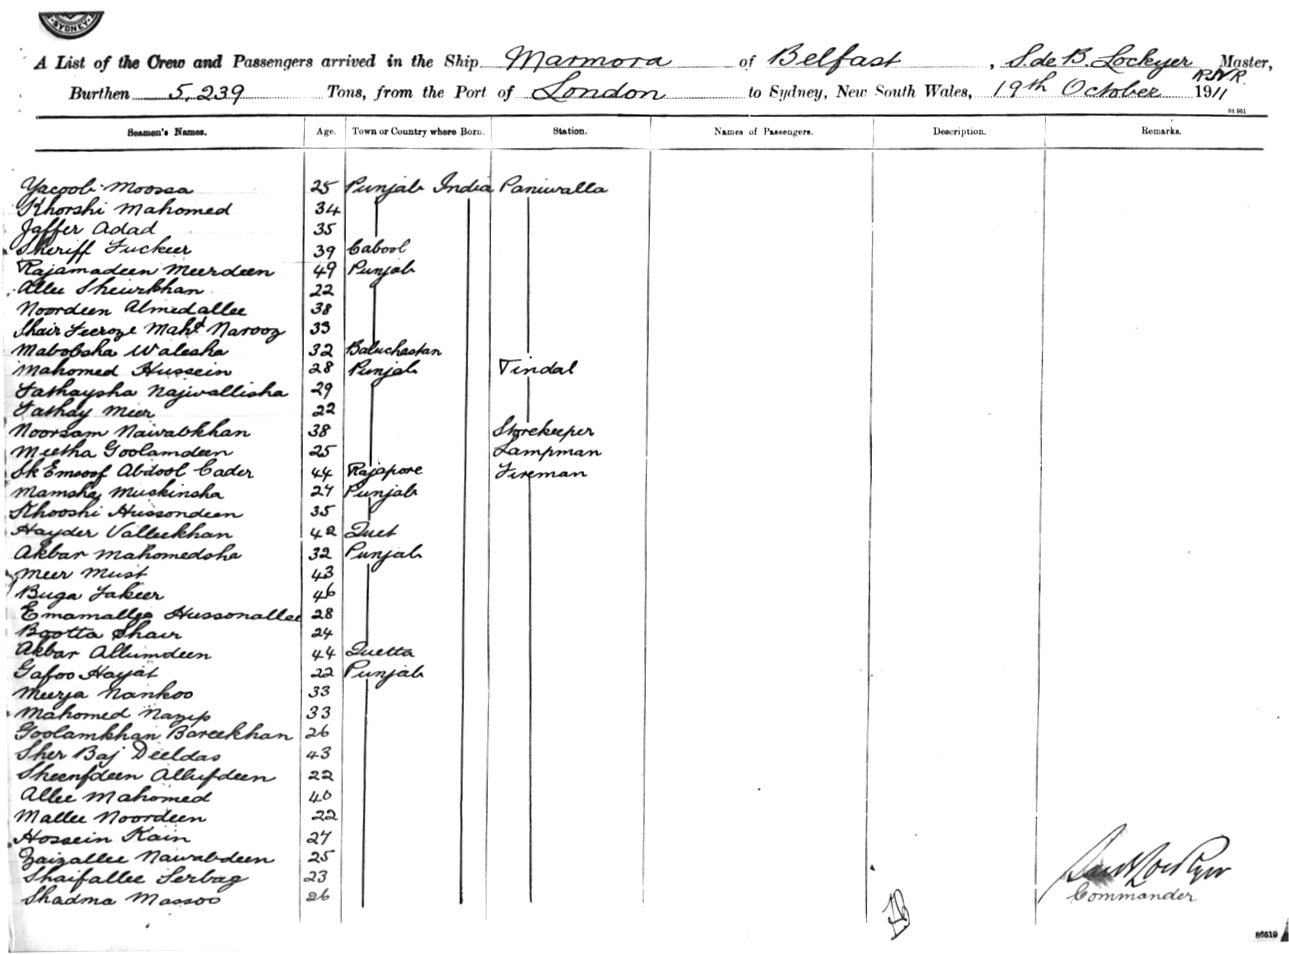 SYDNEY
A List of the Crew and Passengers arrived in the Ship Marmora of Belfast, S. de B. Lockyer Master,
R.N.R.
Burthen 5,239 Tons, from the Port of London to Sydney, New South Wales, 19th October 1911
84 951
Seamen's Names. Age. Town or Country where Born. Station. Names of Passengers. Description. Remarks.
Yacoob Moosa 25 Punjab India Paniwalla
Khorshi Mahomed 34
Jaffer Adad 35
Sheriff Fuckeer 39 Cabool
Rajamadeen Meerdeen 49 Punjab
Allee Sheurkhan 22
Noordeen Almedallee 38
Shair Feeroze Mahd Narooz 33
Mabobsha Walesha 32 Baluchastan
Mahomed Hussein 28 Punjab Tindal
Fathaysha Najwallisha 29
Fathay Meer 22
Noorsam Nawabkhan 38 Storekeeper
Meetha Goolamdeen 25 Lampman
Sk Emsoof Abdool Cader 44 Rajapore Fireman
Mamsha Muskinsha 27 Punjab
Khooshi Hussondeen 35
Hayder Valleekhan 42 Quet
Akbar Mahomedsha 32 Punjab
Meer Must 43
Buga Fakeer 46
Emamallee Hussonallee 28
Bootta Shair 24
Akbar Allumdeen 44 Quetta
Gafoo Hayat 22 Punjab
Meerja Nankoo 33
Mahomed Nazip 33
Goolamkhan Bareekhan 26
Sher Baj Deeldas 43
Sheenfdeen Allufdeen 22
Allee Mahomed 40
Mallee Noordeen 22
Hossein Kain 27
Zaizallee Nawabdeen 25
Shaifallee Serbag 23
Shadma Massoo 26
Commander
86519